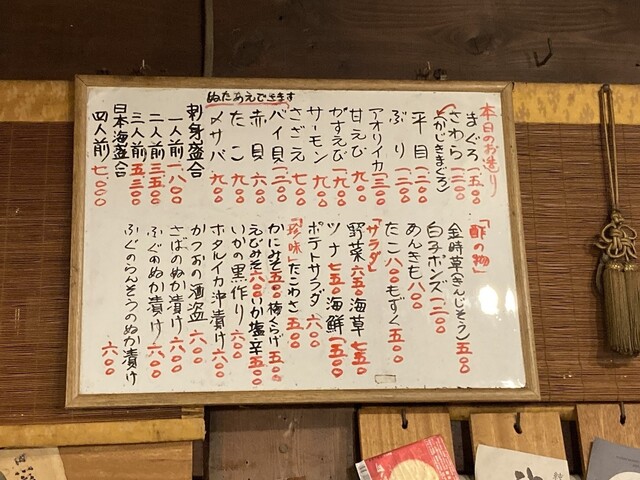 本日のお造り
まぐろ 一五〇〇
さわら 一二〇〇
(かじきまぐろ)
平目 一二〇〇
ぶり 一二〇〇
アオリイカ 一三〇〇
甘えび 九〇〇
がすえび 九〇〇
サーモン 九〇〇
さざえ 七〇〇
バイ貝 一二〇〇
赤貝 六〇〇
たこ 九〇〇
〆サバ 九〇〇
ぬたあえできます
刺身盛合
一人前 一八〇〇
二人前 三五〇〇
三人前 五三〇〇
日本海盛合
四人前 七.〇〇〇
「酢の物」
金時草(きんじそう) 五〇〇
白子ポンズ 一二〇〇
あんきも 八〇〇
たこ 八〇〇 もずく 五〇〇
「サラダ」
野菜 六五〇 海草 七五〇
ツナ 七五〇 海鮮 一五〇〇
ポテトサラダ 六〇〇
「珍味」たこわさ 五〇〇
かにみそ 五〇〇 梅くらげ 五〇〇
えびみそ 六〇〇 いか塩辛 五〇〇
いかの黒作り 六〇〇
ホタルイカ沖漬け 六〇〇
かつおの酒盗 六〇〇
さばのぬか漬け 六〇〇
ふぐのぬか漬け 六〇〇
ふぐのらんそうのぬか漬け 六〇〇